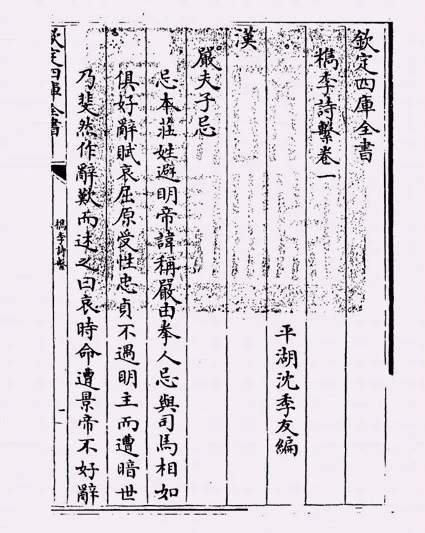 欽定四庫全書
檇李詩繫卷一
平湖沈季友編
漢
嚴夫子忌
忌本莊姓避明帝諱稱嚴由拳人忌與司馬相如
俱好辭賦哀屈原受性忠貞不遇明主而遭暗世
乃斐然作辭歎而述之曰哀時命遭景帝不好辭
欽定四庫全書
檇李詩繫
一